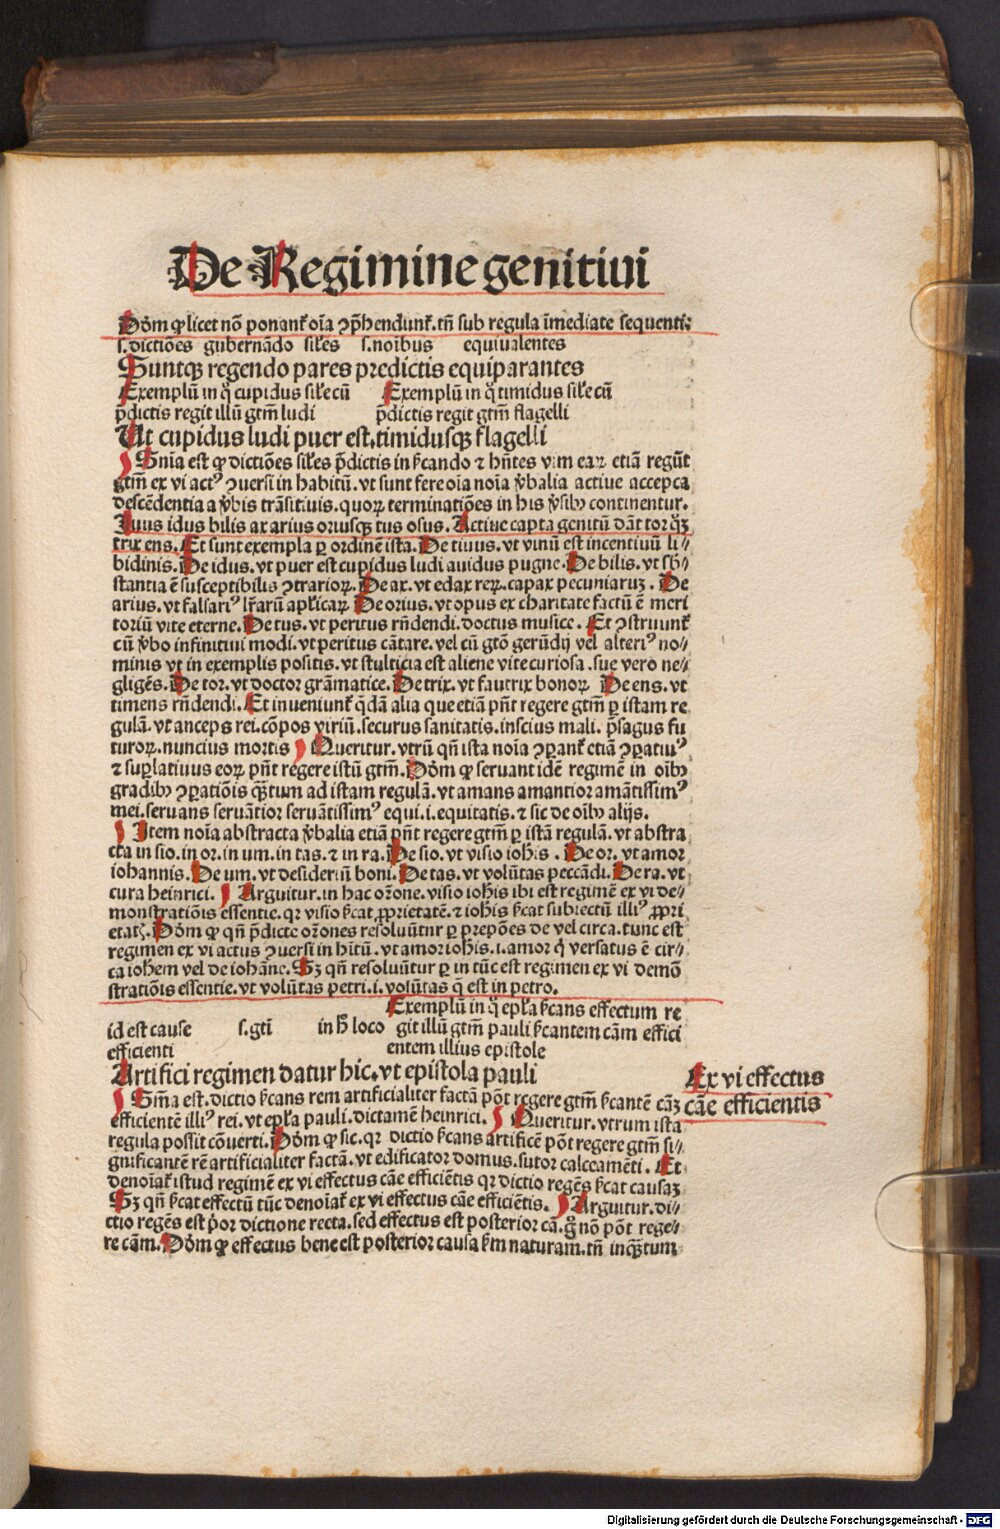 De Regimine genitiui
Dōm ꝙ licet nō ponant̄ oīa ꝯp̄hendunt̄. tñ sub regula īmediate sequenti:
s. dictiōes gubernādo siłes s. noībus equiualentes
Suntqꝫ regendo pares predictis equiparantes
Exemplū in q̄ cupidus siłe cū Exemplū in q̄ timidus siłe cū
p̄dictis regit illū gtm̄ ludi p̄dictis regit gtm̄ flagelli
Ut cupidus ludi puer est. timidusqꝫ flagelli
Snīa est ꝙ dictiōes siłes p̄dictis in ẜcando ⁊ hñtes vim eaꝝ etiā regūt
gtm̄ ex vi actꝰ ꝯuersi in habitū. vt sunt fere oīa noīa v̄balia actiue accepta
descēdentia a v̄bis trāsitiuis. quoꝝ terminatiōes in his v̄sibꝫ continentur.
Iuus idus bilis ax arius oriusqꝫ tus osus. Actiue capta genitū dāt tor q̄ꝫ
trix ens. Et sunt exempla ꝑ ordinē ista. De tiuus. vt vinū est incentiuū li⸗
bidinis. De idus. vt puer est cupidus ludi auidus pugne. De bilis. vt sb̄⸗
stantia ē susceptibilis ꝯtrarioꝝ. De ax. vt edax reꝝ. capax pecuniaruꝫ. De
arius. vt falsariꝰ lr̄arū apłicaꝝ De orius. vt opus ex charitate factū ē meri
toriū vite eterne. De tus. vt peritus rñdendi. doctus musice. Et ꝯstruunt̄
cū v̄bo infinitiui modi. vt peritus cātare. vel cū gtō gerūdij vel alteriꝰ no⸗
minis vt in exemplis positis. vt stulticia est aliene vite curiosa. sue vero ne⸗
gligēs. De tor. vt doctor grāmatice. De trix. vt fautrix bonoꝝ De ens. vt
timens rñdendi. Et inueniunt̄ q̄dā alia que etiā pñt regere gtm̄ ꝑ istam re
gulā. vt anceps rei. cōpos viriū. securus sanitatis. inscius mali. p̄sagus fu
turoꝝ. nuncius mortis Queritur. vtrū qñ ista noīa ꝯꝑant̄ etiā ꝯꝑatiuꝰ
⁊ suꝑlatiuus eoꝝ pñt regere istū gtm̄. Dōm ꝙ seruant idē regimē in oībꝫ
gradibꝫ ꝯꝑatiōis q̄ꝫtum ad istam regulā. vt amans amantior amātissimꝰ
mei. seruans seruātior seruātissimꝰ equi. i. equitatis. ⁊ sic de oībꝫ alijs.
Item noīa abstracta v̄balia etiā pñt regere gtm̄ ꝑ istā regulā. vt abstra
cta in sio. in or. in um. in tas. ⁊ in ra. De sio. vt visio ioh̄is. De or. vt amor
iohannis. De um. vt desideriū boni. De tas. vt volūtas peccādi. De ra. vt
cura heinrici. Arguitur. in hac or̄one. visio ioh̄is ibi est regimē ex vi de⸗
monstratiōis essentie. qꝛ visio ẜcat ꝓprietatē. ⁊ ioh̄is ẜcat subiectū illiꝰ ꝓpri
etatꝭ. Dōm ꝙ qñ p̄dicte or̄ones resoluūtur ꝑ prepōes de vel circa. tunc est
regimen ex vi actus ꝯuersi in h̄itū. vt amor ioh̄is. i. amor q̄ versatus ē cir⸗
ca ioh̄em vel de iohāne. Sꝫ qñ resoluūtur ꝑ in tūc est regimen ex vi demō
stratiōis essentie. vt volūtas petri. i. volūtas q̄ est in petro.
Exemplū in q̄ epła ẜcans effectum re
id est cause s. gtī in h̄ loco git illū gtm̄ pauli ẜcantem cām effici
efficienti entem illius epistole
Artifici regimen datur hic. vt epistola pauli
Ex vi effectus
cāe efficientis
Sm̄a est. dictio ẜcans rem artificialiter factā pōt regere gtm̄ ẜcantē cāꝫ
efficientē illiꝰ rei. vt epła pauli. dictamē heinrici. Queritur. vtrum ista
regula possit cōuerti. Dōm ꝙ sic. qꝛ dictio ẜcans artificē pōt regere gtm̄ si⸗
gnificantē rē artificialiter factā. vt edificator domus. sutor calceamēti. Et
denoīat̄ istud regimē ex vi effectus cāe efficiētis qꝛ dictio regēs ẜcat causaꝫ
Sꝫ qñ ẜcat effectū tūc denoīat̄ ex vi effectus cāe efficiētis. Arguitur. di⸗
ctio regēs est p̄or dictione recta. sed effectus est posterior cā. gͦ nō pōt rege⸗
re cām. Dōm ꝙ effectus bene est posterior causa ẜm naturam. tñ inq̄ꝫtum
Digitalisierung gefördert durch die Deutsche Forschungsgemeinschaft - DFG